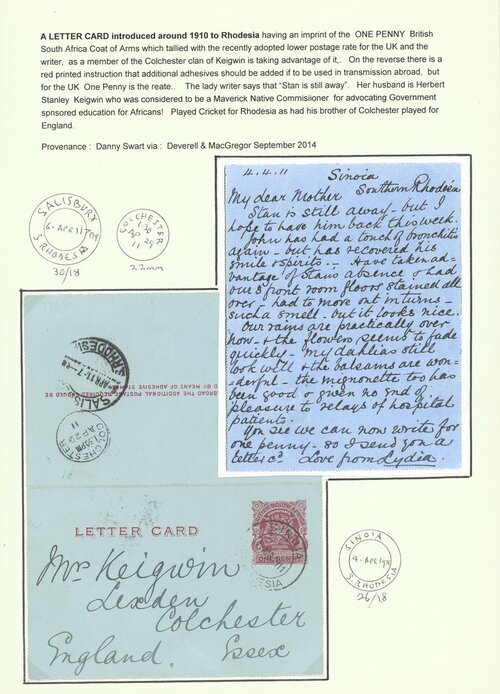 A LETTER CARD introduced around 1910 to Rhodesia having an imprint of the ONE PENNY British
South Africa Coat of Arms which tallied with the recently adopted lower postage rate for the UK and the
writer, as a member of the Colchester clan of Keigwin is taking advantage of it,. On the reverse there is a
red printed instruction that additional adhesives should be added if to be used in transmission abroad, but
for the UK One Penny is the reate.. The lady writer says that "Stan is still away". Her husband is Herbert
Stanley Keigwin who was considered to be a Maverick Native Commisiioner for advocating Government
spnsored education for Africans! Played Cricket for Rhodesia as had his brother of Colchester played for
England.
Provenance : Danny Swart via : Deverell & MacGregor September 2014
4.4.11 Sinoia
Southern Rhodesia
My dear Mother
Stan is still away - but I
hope to have him back this week.
John has had a touch of bronchitis
again - but has recovered his
smile & spirits. - Have taken ad-
vantage of Stans absence & had
our 3 front room floors stained all
over - had to move out in turns -
such a smell - but it looks nice.
Our rains are practically over
now - & the flowers seems to fade
quickly - my dahlias still
look well & the balsams are won-
-derful - the mignonette too has
been good & given no end of
pleasure to relays of hospital
patients.
You see we can now write for
one penny - so I send you a
letter cd Love from Lydia.
SALISBURY
6 - APR 11 7PM
S. RHODESIA
30/18
COLCHESTER
AP 29
11
22mm
SALIS
RHODESIA
ABROAD THE ADDITIONAL POSTAGE REQUIRED
D BY MEANS OF ADHESIVE STAMPS
COLCHESTER
AP 29
11
LETTER CARD
ONE PENNY
Mrs Keigwin
Lexden
Colchester
England. Essex
SINOIA
4 - APR 1911
S. RHODESIA
26/18